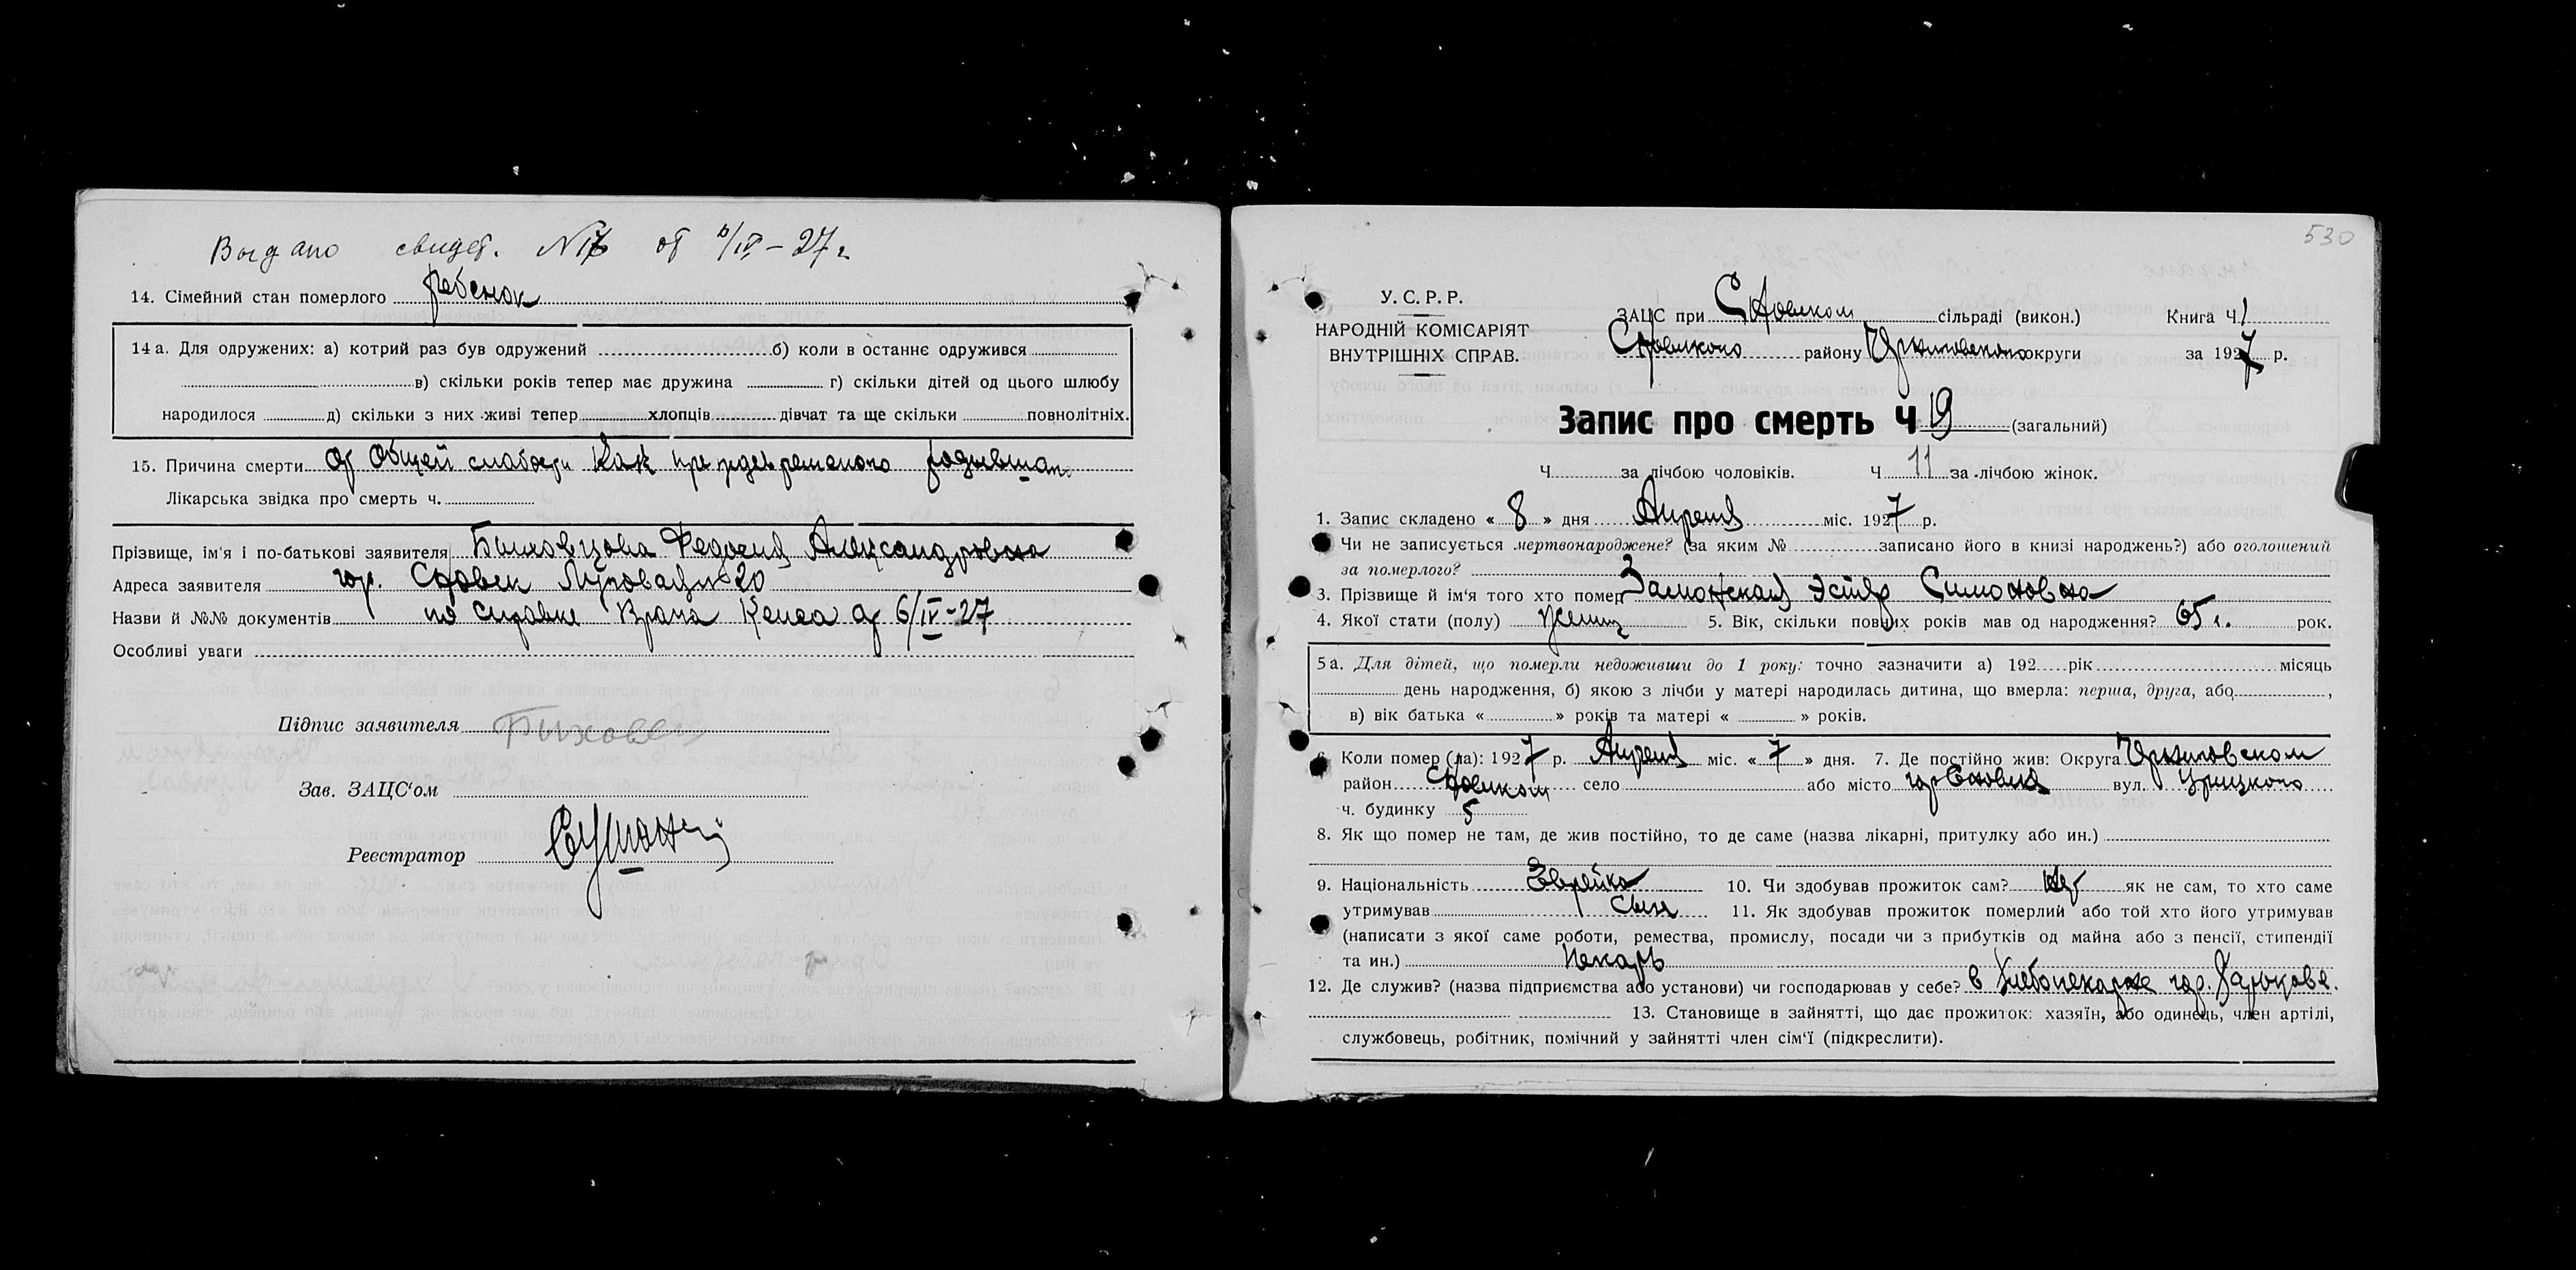 Выдано свидет. №17 от 6/IV-27г.
14. Сімейний стан померлого ребенок
14 а. Для одружених: а) котрий раз був одружений б) коли в останнє одружився
в) скільки років тепер має дружина г) скільки дітей од цього шлюбу
народилося д) скільки з них живі тепер хлопців дівчат та ще скільки повнолітніх.
15. Причина смерти от Общей слабости Как преждевременого родившаго
Лікарська звідка про смерть ч.
Прізвище, ім'я і по-батькові заявителя Федосия Александровна
Адреса заявителя гор. Сновск Луговая 20
Назви й №№ документів по справке Врача от 6/IV-27
Особливі уваги
Підпис заявителя
Зав. ЗАЦС'ом
Реєстратор
530
У. С. Р. Р.
НАРОДНІЙ КОМІСАРІЯТ
ВНУТРІШНІХ СПРАВ.
ЗАЦС при Сновском сільраді (викон.) Книга Ч. 1
Сновского району Черниговского округи за 1927 р.
Запис про смерть Ч 19 (загальний)
Ч за лічбою чоловіків. Ч 11 за лічбою жінок.
1. Запис складено « 8 » дня Апреля міс. 1927 р.
Чи не записується мертвонароджене? (за яким № записано його в книзі народжень?) або оголошений
за померлого?
3. Прізвище й ім'я того хто помер Эстер Симоновна
4. Якої стати (полу) женщ 5. Вік, скільки повних років мав од народження? 65 г. рок.
5 а. Для дітей, що померли недоживши до 1 року: точно зазначити а) 192 рік місяць
день народження, б) якою з лічби у матері народилась дитина, що вмерла: перша, друга, або ,
в) вік батька « » років та матері « » років.
6. Коли помер (ла): 1927 р. Апреля міс. « 7 » дня. 7. Де постійно жив: Округа Черниговском
район Сновском село або місто гор Сновск вул. Урицкого
ч. будинку 5
8. Як що помер не там, де жив постійно, то де саме (назва лікарні, притулку або ин.)
9. Національність Еврейка 10. Чи здобував прожиток сам? Нет як не сам, то хто саме
утримував Сын 11. Як здобував прожиток померлий або той хто його утримував
(написати з якої саме роботи, ремества, промислу, посади чи з прибутків од майна або з пенсії, стипендії
та ин.) Пекарь
12. Де служив? (назва підприємства або установи) чи господарював у себе? в Хлебопекарне гор. Харькове.
13. Становище в зайнятті, що дає прожиток: хазяїн, або одинець, член артілі,
службовець, робітник, помічний у зайнятті член сім'ї (підкреслити).